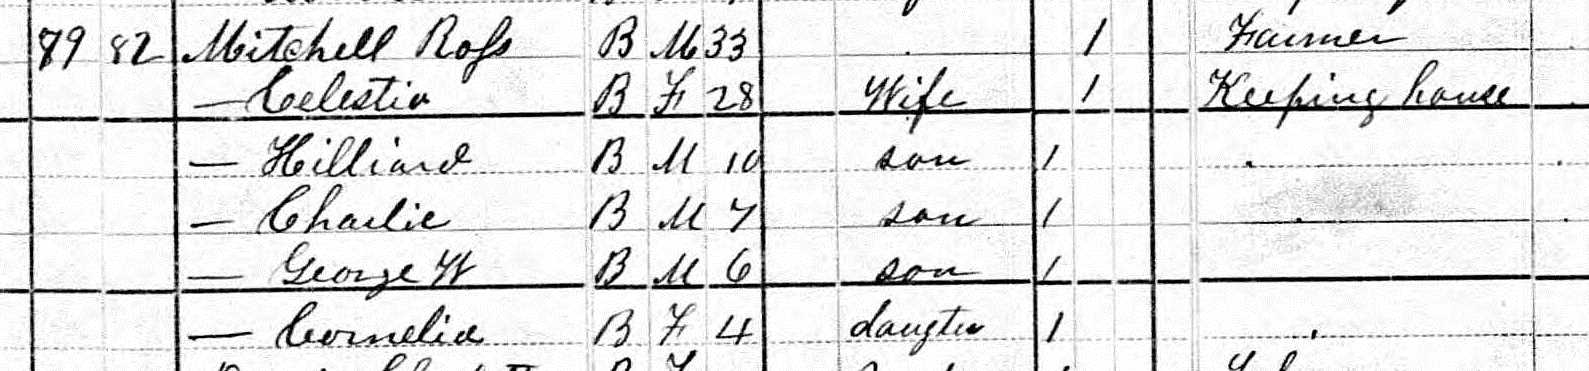 79 82 Mitchell Ross B M 33 1 Farmer
— Celestia B F 28 Wife 1 Keeping house
— Hilliard B M 10 son 1
— Charlie B M 7 son 1
— George W B M 6 son 1
— Cornelia B F 4 daugter 1